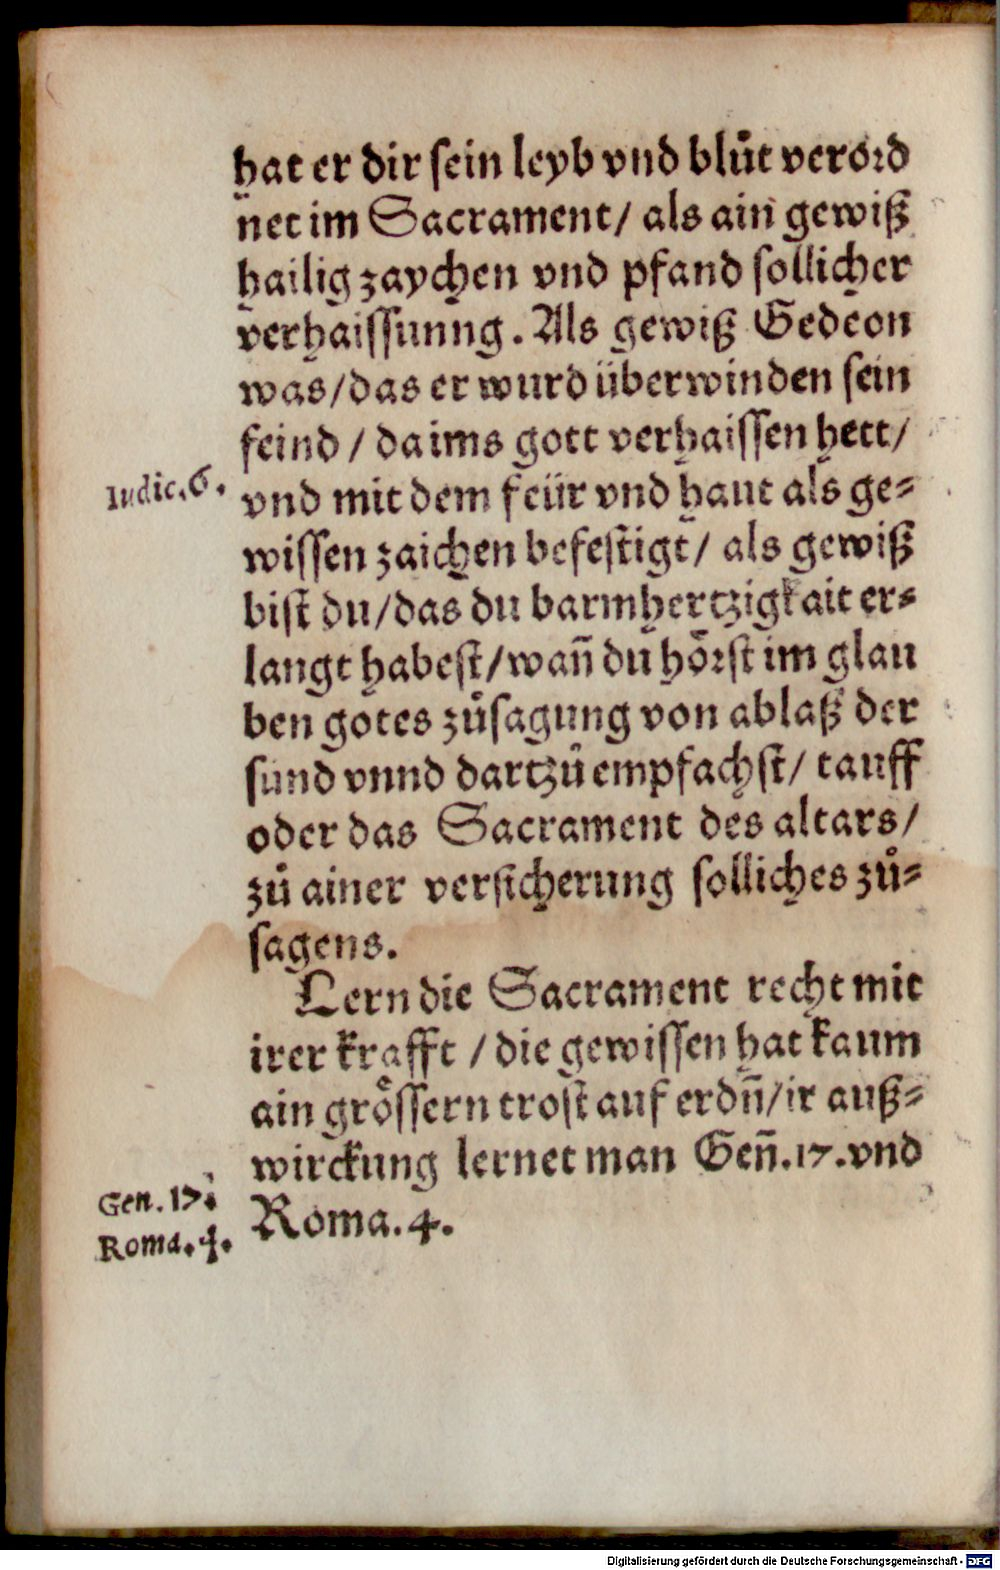 hat er dir sein leyb vnd blůt verord
net im Sacrament/ als ain gewiß
hailig zaychen vnd pfand sollicher
verhaissunng. Als gewiß Gedeon
was/das er wurd überwinden sein
feind / da ims gott verhaissen hett/
Iudic.6.
vnd mit dem feür vnd haut als ge-
wissen zaichen befestigt/ als gewiß
bist du/das du barmhertzigkait er-
langt habest/wañ du hoͤrst im glau
ben gotes zůsagung von ablaß der
sund vnnd dartzů empfachst/ tauff
oder das Sacrament des altars/
zů ainer versicherung solliches zů-
sagens.
Lern die Sacrament recht mit
irer krafft / die gewissen hat kaum
ain groͤssern trost auf erdñ/ir auß-
wirckung lernet man Geñ.17.vnd
Gen. 17.
Roma.4.
Roma.4.
Digitalisierung gefördert durch die Deutsche Forschungsgemeinschaft - DFG